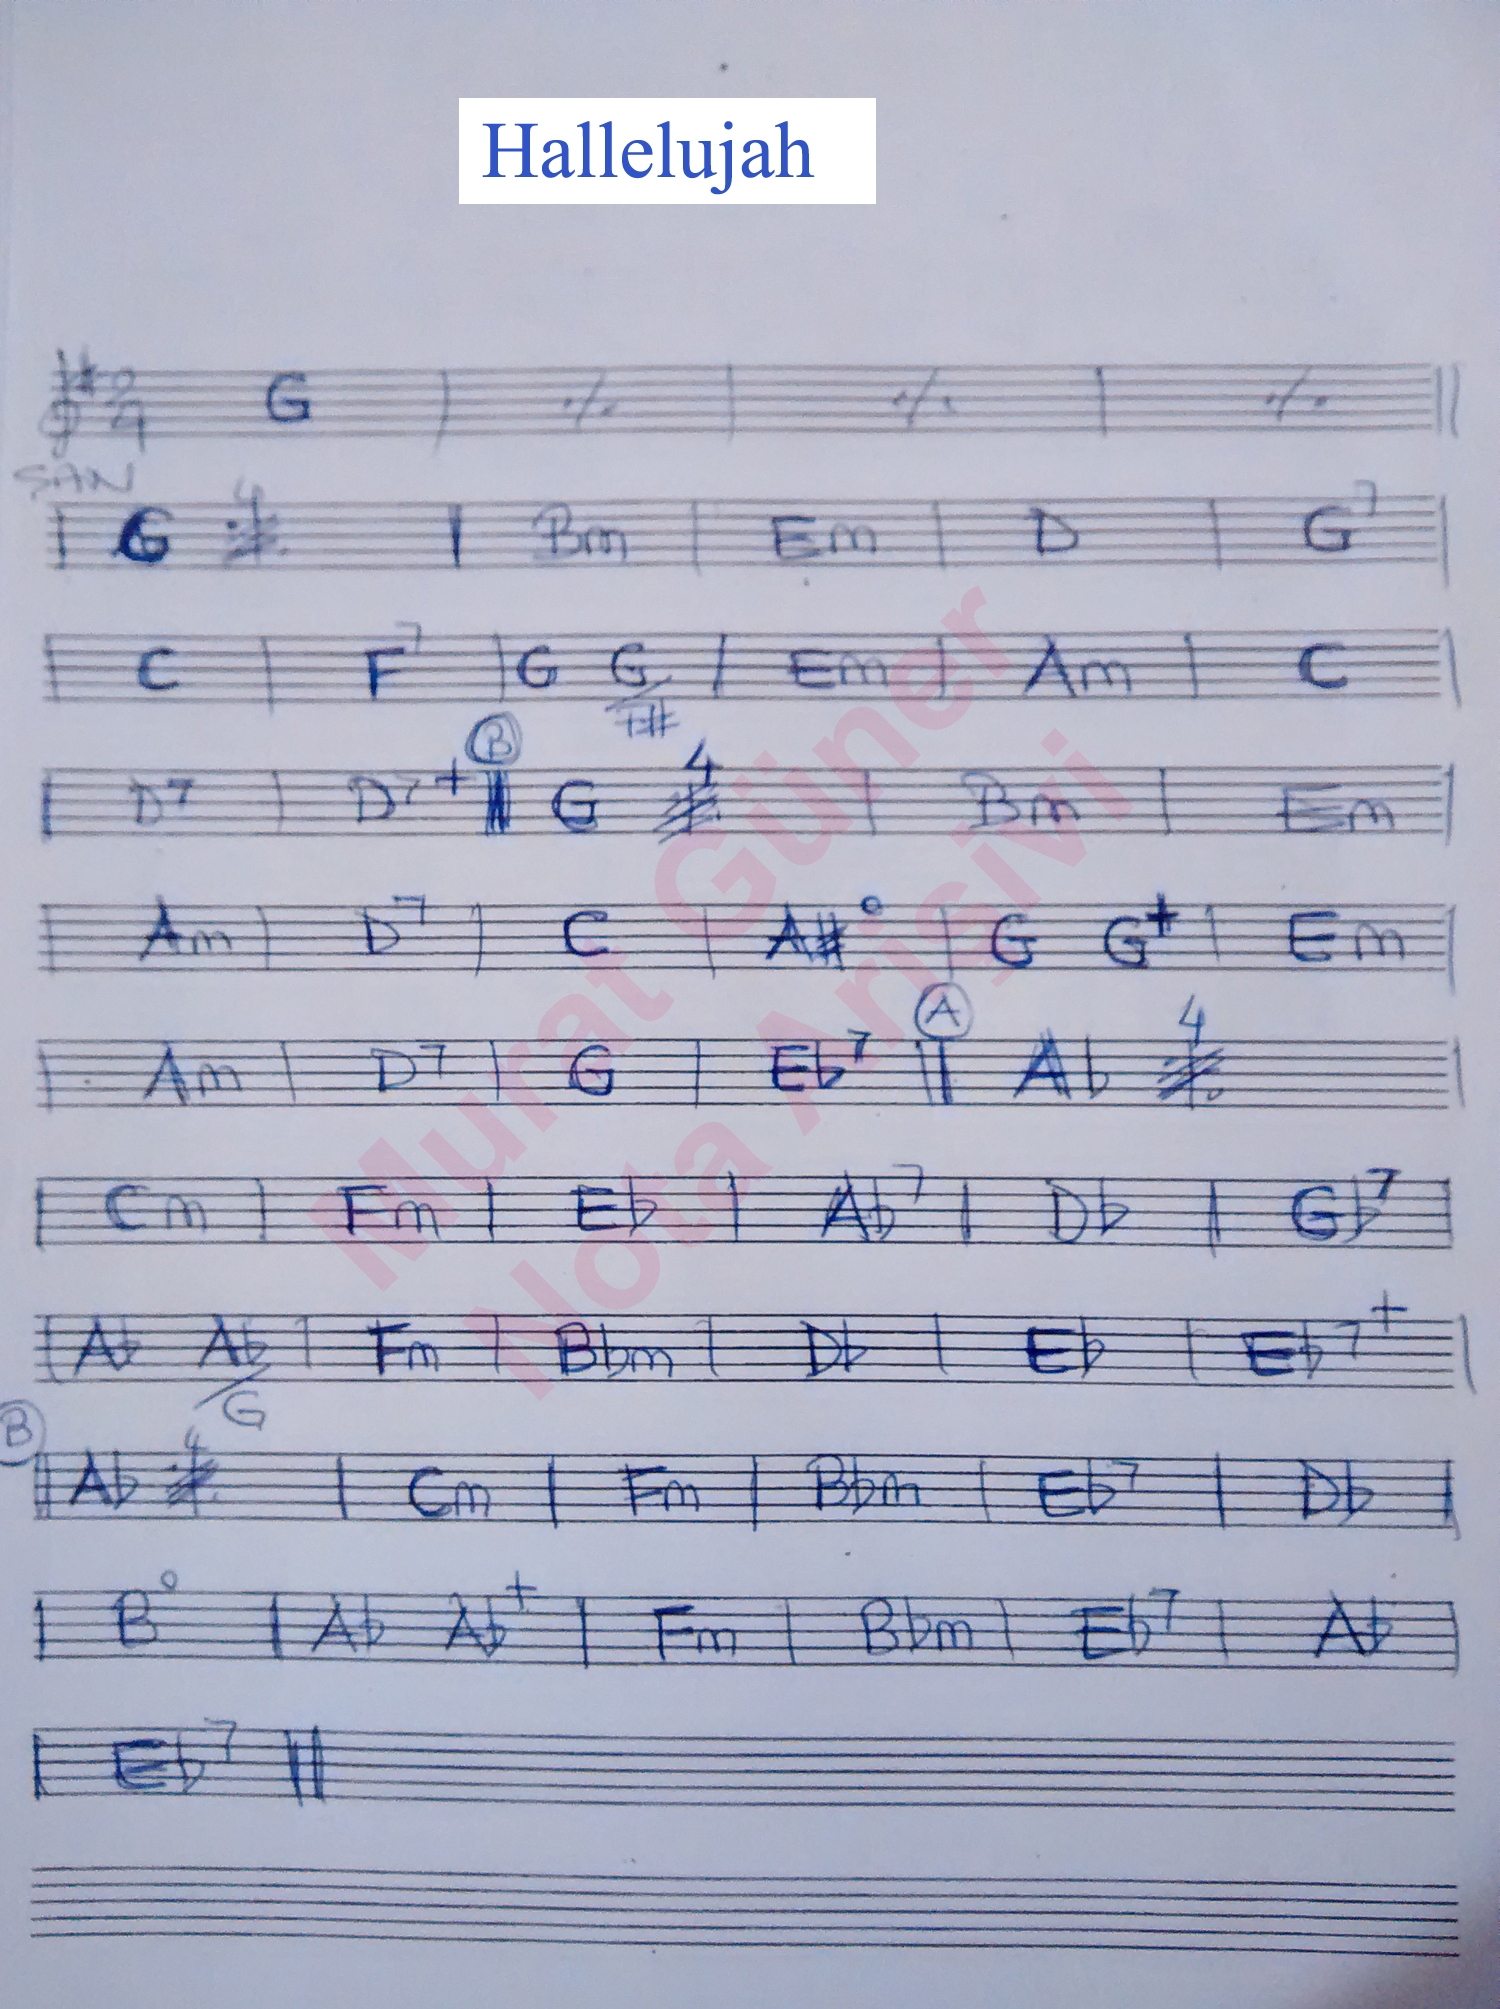 Hallelujah
2/4 G | ٪ | ٪ | ٪ ||
ŞAN
| G 4 ٪ | Bm | Em | D | G7 |
| C | F7 | G G/F# | Em | Am | C |
| D7 | D7+ || (B) G 4 ٪ | Bm | Em |
| Am | D7 | C | A#° | G G+ | Em |
| Am | D7 | G | Eb7 || (A) Ab 4 ٪ |
| Cm | Fm | Eb | Ab7 | Db | Gb7 |
| Ab Ab/G | Fm | Bbm | Db | Eb | Eb7+ |
(B) || Ab 4 ٪ | Cm | Fm | Bbm | Eb7 | Db |
| B° | Ab Ab+ | Fm | Bbm | Eb7 | Ab |
| Eb7 ||
Murat Güner
Nota Arişivi